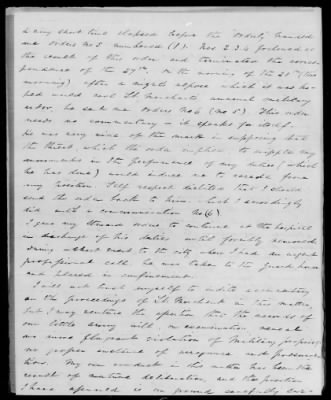 a very short time elapsed before the "Orderly" handed
me orders No 5 numbered (1). Nos 2. 3. 4 followed as
the result of this order and terminated the corres-
pondence of the 27th. On the morning of the 28th (this
morning) after a nights repose which it was ho-
ped would cool Lt Merchants unusual military
ardor, he sent me orders No 6 (no 5). This order
needs no commentary — it speaks for itself.
He was very wide of the mark in supposing that
the threat, which the order implies, to cripple my
movements in the performance of my duties, (which
he has done) would induce me to recede from
my position. Self respect dictated that I should
send the order back to him. which I accordingly
did with a communication No (6)
I gave my steward orders to continue at the hospital
in discharge of his duties until forcibly removed.
Being about to the city where I had an urgent
professional call, he was taken to the Guard house
and placed in confinement.
I will not trust myself to indite a commentary
on the proceedings of Lt. Merchant in this matter,
but I may venture the opinion that the records of
our little army will, on examination, reveal
no more flagrant violation of Military propriety
no grosser instance of arrogance and presump-
tion. My own conduct in this matter has been the
result of mature deliberation, and the position
I have assumed is on ground carefully